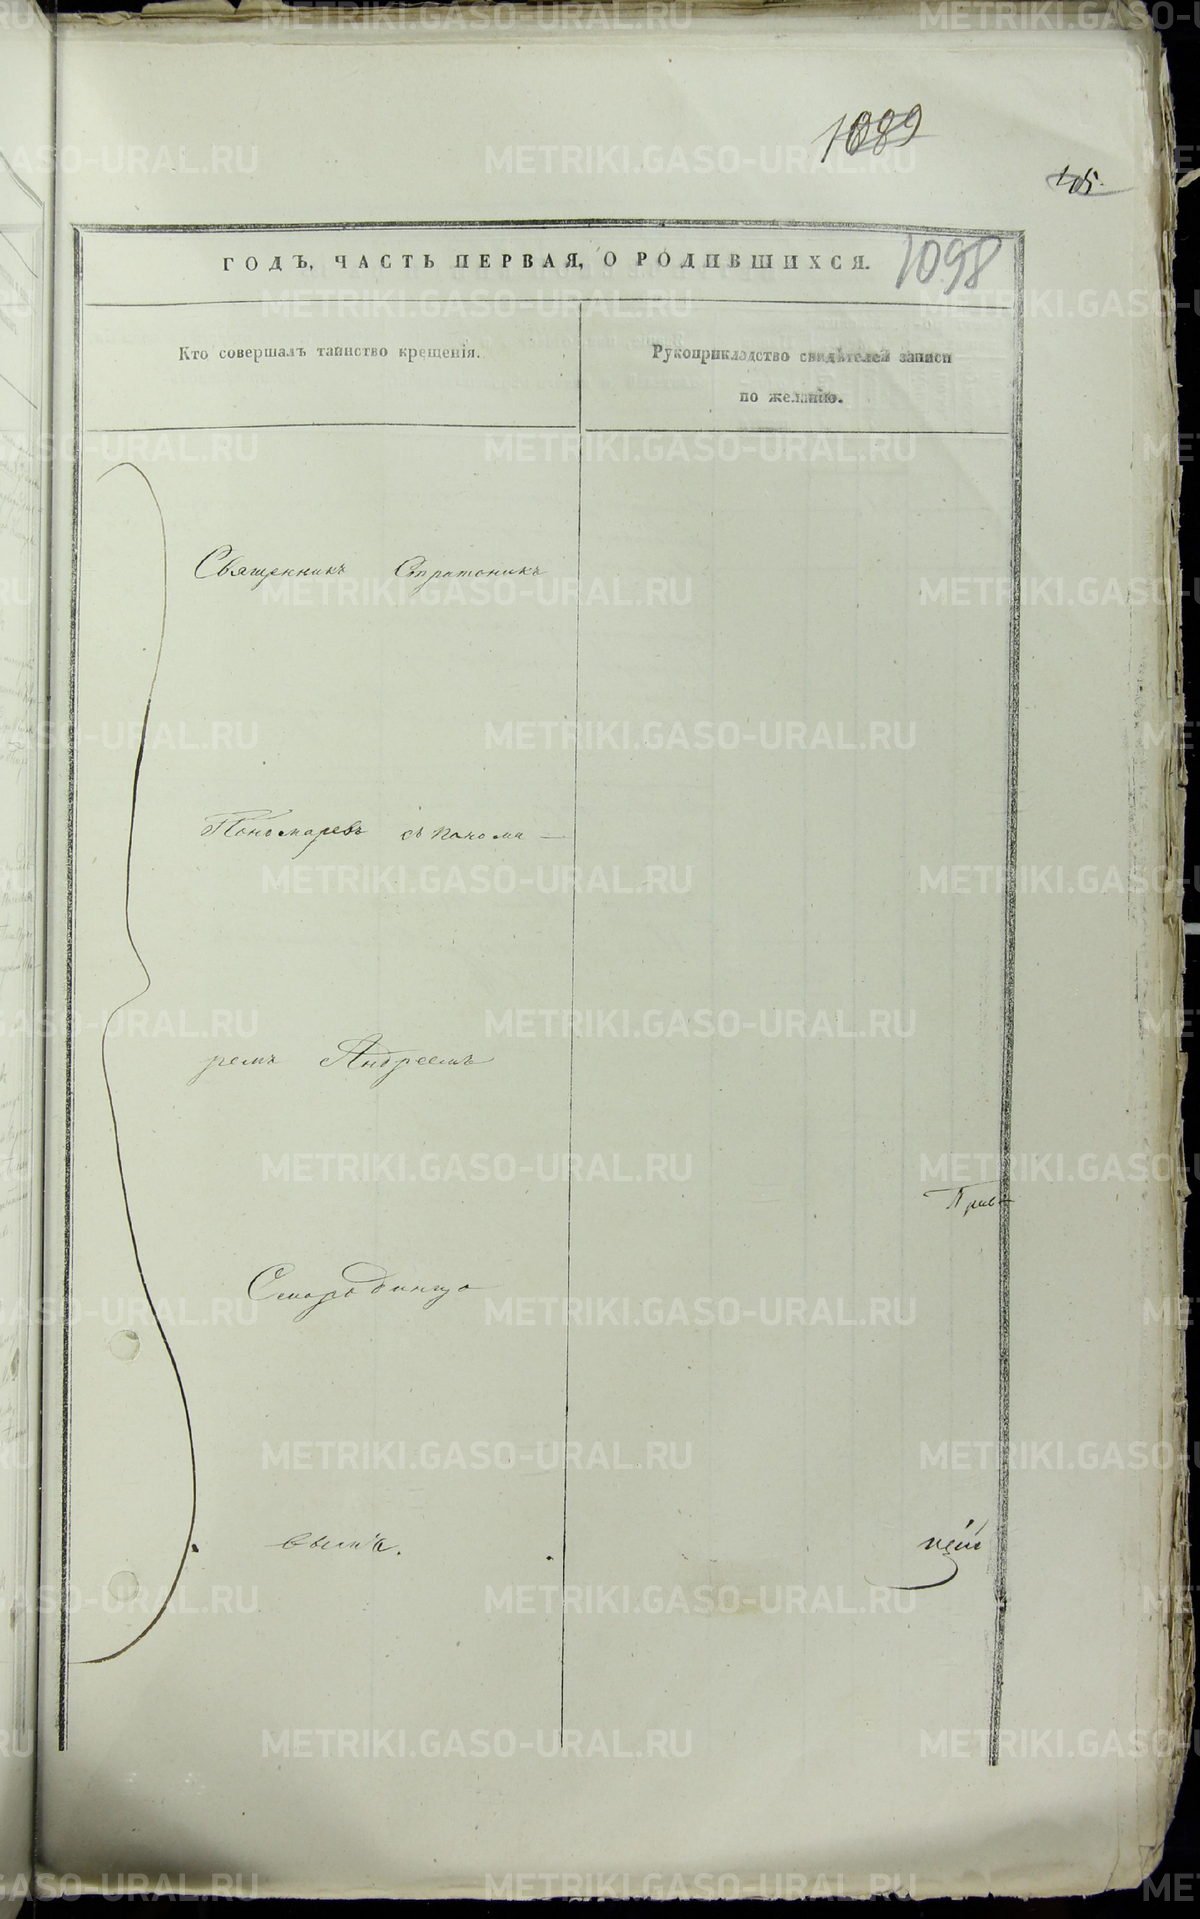 1089
45.
ГОДЪ, ЧАСТЬ ПЕРВАЯ, О РОДИВШИХСЯ.
1098
Кто совершалъ таинство крещенія.
Рукоприкладство свидѣтелей записи
по желанію.
Священникъ Стратоникъ
Пономаревъ съ понома-
ремъ Андреемъ
Смородинцо
вымъ.
METRIKI.GASO-URAL.RU